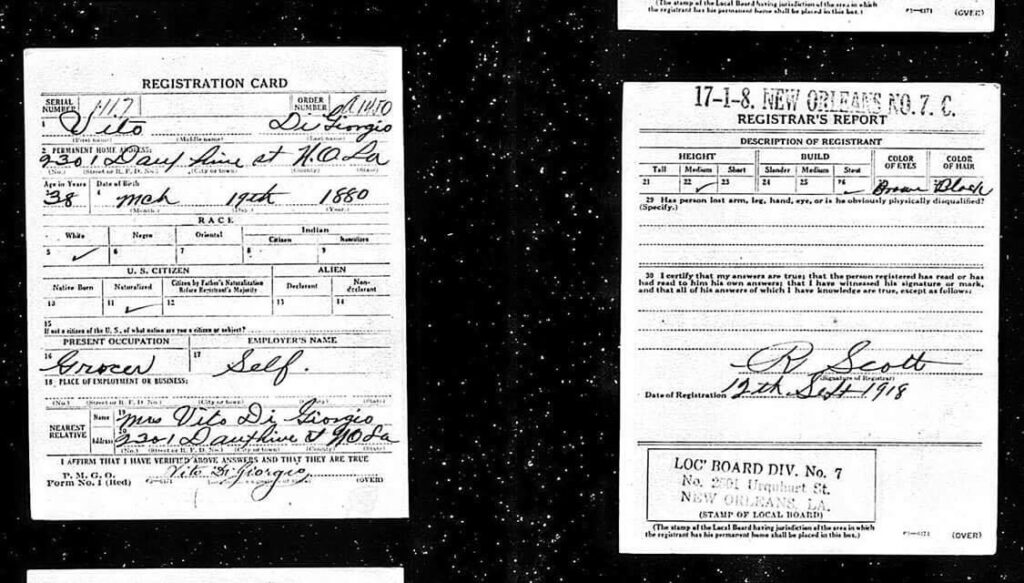 REGISTRATION CARD
SERIAL NUMBER 1117 ORDER NUMBER A1450
1 Vito Di Giorgio
(First name) (Middle name) (Last name)
2 PERMANENT HOME ADDRESS:
2301 Dauphine st N.O La
(No.) (Street or R. F. D. No.) (City or town) (County) (State)
Age in Years Date of Birth
3 38 4 Mch 19th 1880
(Month.) (Day.) (Year.)
RACE
White Negro Oriental Indian
Citizen Noncitizen
5 ✓ 6 7 8 9
U. S. CITIZEN ALIEN
Native Born Naturalized Citizen by Father's Naturalization Before Registrant's Majority Declarant Non-declarant
10 11 ✓ 12 13 14
15
If not a citizen of the U. S., of what nation are you a citizen or subject?
PRESENT OCCUPATION EMPLOYER'S NAME
16 Grocer 17 Self.
18 PLACE OF EMPLOYMENT OR BUSINESS:
(No.) (Street or R. F. D. No.) (City or town) (County) (State)
NEAREST RELATIVE
Name 19 Mrs Vito Di Giorgio
Address 20 2301 Dauphine st NO La
(No.) (Street or R. F. D. No.) (City or town) (County) (State)
I AFFIRM THAT I HAVE VERIFIED ABOVE ANSWERS AND THAT THEY ARE TRUE
P. M. G. O.
Form No. 1 (Red) Vito Di Giorgio (OVER)
(The stamp of the Local Board having jurisdiction of the area in which
the registrant has his permanent home shall be placed in this box.) (OVER)
17-1-8. NEW ORLEANS NO. 7. C.
REGISTRAR'S REPORT
DESCRIPTION OF REGISTRANT
HEIGHT BUILD COLOR OF EYES COLOR OF HAIR
Tall Medium Short Slender Medium Stout
21 22 ✓ 23 24 25 26 ✓ Brown Black
29 Has person lost arm, leg, hand, eye, or is he obviously physically disqualified?
(Specify.)
30 I certify that my answers are true; that the person registered has read or has
had read to him his own answers; that I have witnessed his signature or mark,
and that all of his answers of which I have knowledge are true, except as follows:
R Scott
(Signature of Registrar)
Date of Registration 12th Sept 1918
LOC' BOARD DIV. No. 7
No. 2601 Urquhart St.
NEW ORLEANS, LA.
(STAMP OF LOCAL BOARD)
(The stamp of the Local Board having jurisdiction of the area in which
the registrant has his permanent home shall be placed in this box.) (OVER)